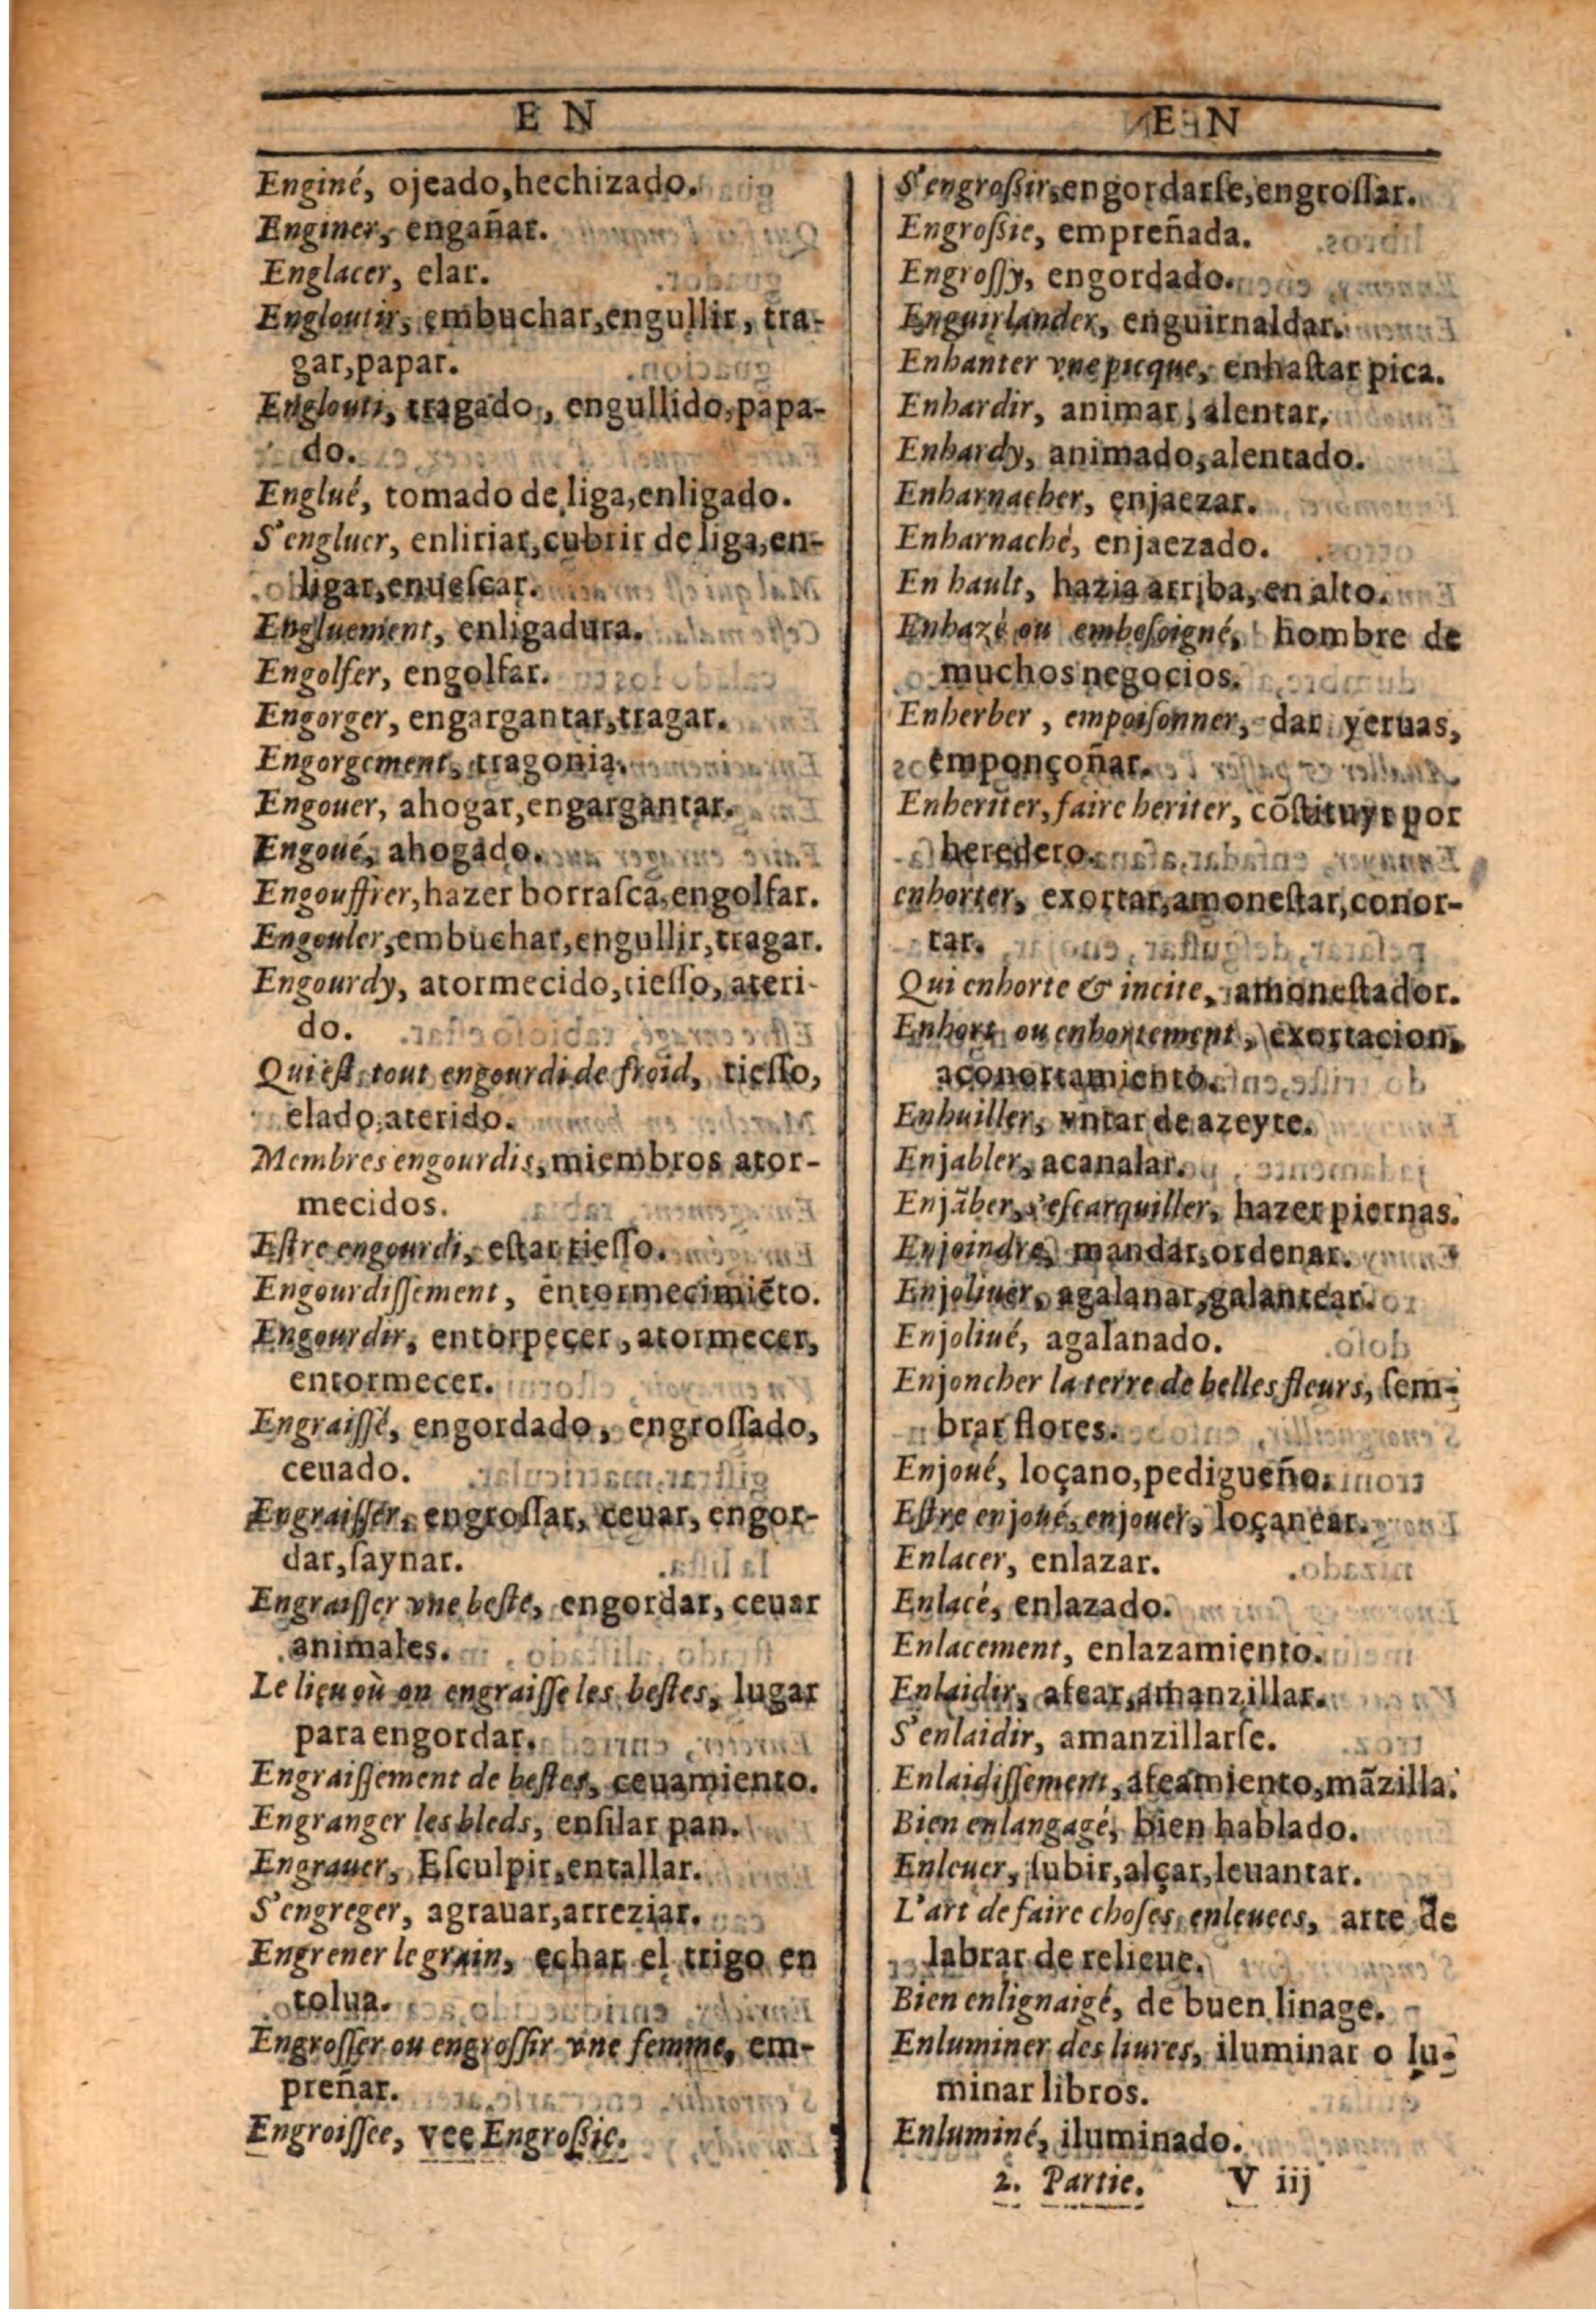 E N
Enginé, ojeado,hechizado.
Enginer, engañar.
Englacer, elar.
Engloutir, embuchar,engullir, tra-
gar,papar.
Englouti, tragado, engullido,papa-
do.
Englué, tomado de liga,enligado.
S'engluer, enliriar,cubrir de liga,en-
ligar,enueſcar.
Engluement, enligadura.
Engolfer, engolfar.
Engorger, engargantar,tragar.
Engorgement, tragonia.
Engouer, ahogar,engargantar.
Engoué, ahogado.
Engouffrer,hazer borraſca,engolfar.
Engouler,embuchar,engullir,tragar.
Engourdy, atormecido,tieſſo, ateri-
do.
Qui eſt tout engourdi de froid, tieſſo,
elado,aterido.
Membres engourdis,miembros ator-
mecidos.
Eſtre engourdi, eſtar tieſſo.
Engourdiſſement, entormecimiẽto.
Engourdir, entorpecer, atormecer,
entormecer.
Engraiſſé, engordado, engroſſado,
ceuado.
Engraiſſer, engroſſar, ceuar, engor-
dar,ſaynar.
Engraiſſer vne beſte, engordar, ceuar
animales.
Le lieu où on engraiſſe les beſtes, lugar
para engordar.
Engraiſſement de beſtes, ceuamiento.
Engranger les bleds, enſilar pan.
Engrauer, Eſculpir,entallar.
S'engreger, agrauar,arreziar.
Engrener le grain, echar el trigo en
tolua.
Engroſſer ou engroſſir vne femme, em-
preñar.
Engroiſſee, vee Engroſsie.
E N
S'engroſsir,engordarſe,engroſſar.
Engroſsie, empreñada.
Engroſſy, engordado.
Enguirlander, enguirnaldar.
Enhanter vne picque, enhaſtar pica.
Enhardir, animar, alentar.
Enhardy, animado,alentado.
Enharnacher, enjaezar.
Enharnaché, enjaezado.
En hault, hazia arriba, en alto.
Enhazé ou embeſoigné, hombre de
muchos negocios.
Enherber, empoiſonner, dar yeruas,
emponçoñar.
Enheriter, faire heriter, cõſtituyr por
heredero.
enhorter, exortar,amoneſtar,conor-
tar.
Qui enhorte & incite, amoneſtador.
Enhort ou enhortement, exortacion,
aconortamiento.
Enhuiller, vntar de azeyte.
Enjabler, acanalar.
Enjãber, s'eſcarquiller, hazer piernas.
Enjoindre, mandar,ordenar.
Enjoliuer, agalanar,galantear.
Enjoliué, agalanado.
Enjoncher la terre de belles fleurs, ſem-
brar flores.
Enjoué, loçano,pedigueño.
Eſtre enjoué, enjouer, loçanear.
Enlacer, enlazar.
Enlacé, enlazado.
Enlacement, enlazamiento.
Enlaidir, afear,amanzillar.
S'enlaidir, amanzillarſe.
Enlaidiſſement, afeamiento,mãzilla.
Bien enlangagé, bien hablado.
Enleuer, ſubir,alçar,leuantar.
L'art de faire choſes enleuees, arte de
labrar de relieue.
Bien enlignaigé, de buen linage.
Enluminer des liures, iluminar o lu-
minar libros.
Enluminé, iluminado.
2. Partie. V iij